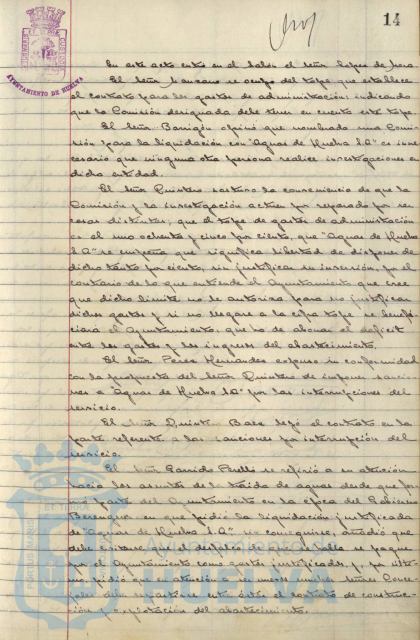 14
AYUNTAMIENTO DE HUELVA
En este acto entra en el Salón el Señor López de Mora.
El Señor Manzano se ocupa del tope que establece
el contrato para los gastos de administración, indicando
que la Comisión designada debe tener en cuenta este tope.
El Señor Barrigón opinó que nombrada una Comi-
sión para la liquidación con "Aguas de Huelva S.A." es inne-
cesario que ninguna otra persona realice investigaciones en
dicha entidad.
El Señor Quintero sostuvo la conveniencia de que la
Comisión y la investigación actúen por separado por ser
cosas distintas, que el tope de gastos de administración
es el uno ochenta y cinco por ciento, que "Aguas de Huelva
S.A." se empeña que significa libertad de disponer de
dicho tanto por ciento, sin justificar su inversión, por el
contrario de lo que entiende el Ayuntamiento que cree
que dicho límite no le autoriza para no justificar
dichos gastos y si no llegare a la cifra tope se benefi-
ciará el Ayuntamiento, que ha de abonar el déficit
entre los gastos y los ingresos del abastecimiento.
El Señor Pérez Hernández expuso su conformidad
con la propuesta del Señor Quintero de imponer sancio-
nes a "Aguas de Huelva S.A." por las interrupciones del
servicio.
El Señor Quintero Baez leyó el contrato en la
parte referente a las sanciones por interrupción del
servicio.
El Señor Garrido Perelló se refirió a su atención
hacia los asuntos de la traída de aguas desde que for-
mó parte del Ayuntamiento en la época del Gobierno
Berenguer en que pidió la liquidación justificada
de "Aguas de Huelva S.A." sin conseguirse, añadió que
debe evitarse que el despilfarro se pague
por el Ayuntamiento como gastos justificados, y, por últi-
mo, pidió que en atención a ser muchos Señores Conce-
jales debe repartirse entre éstos el contrato de construc-
ción y explotación del abastecimiento.
PORTUS MARIS
ET TERRAE
Ayuntamiento
HUELVA